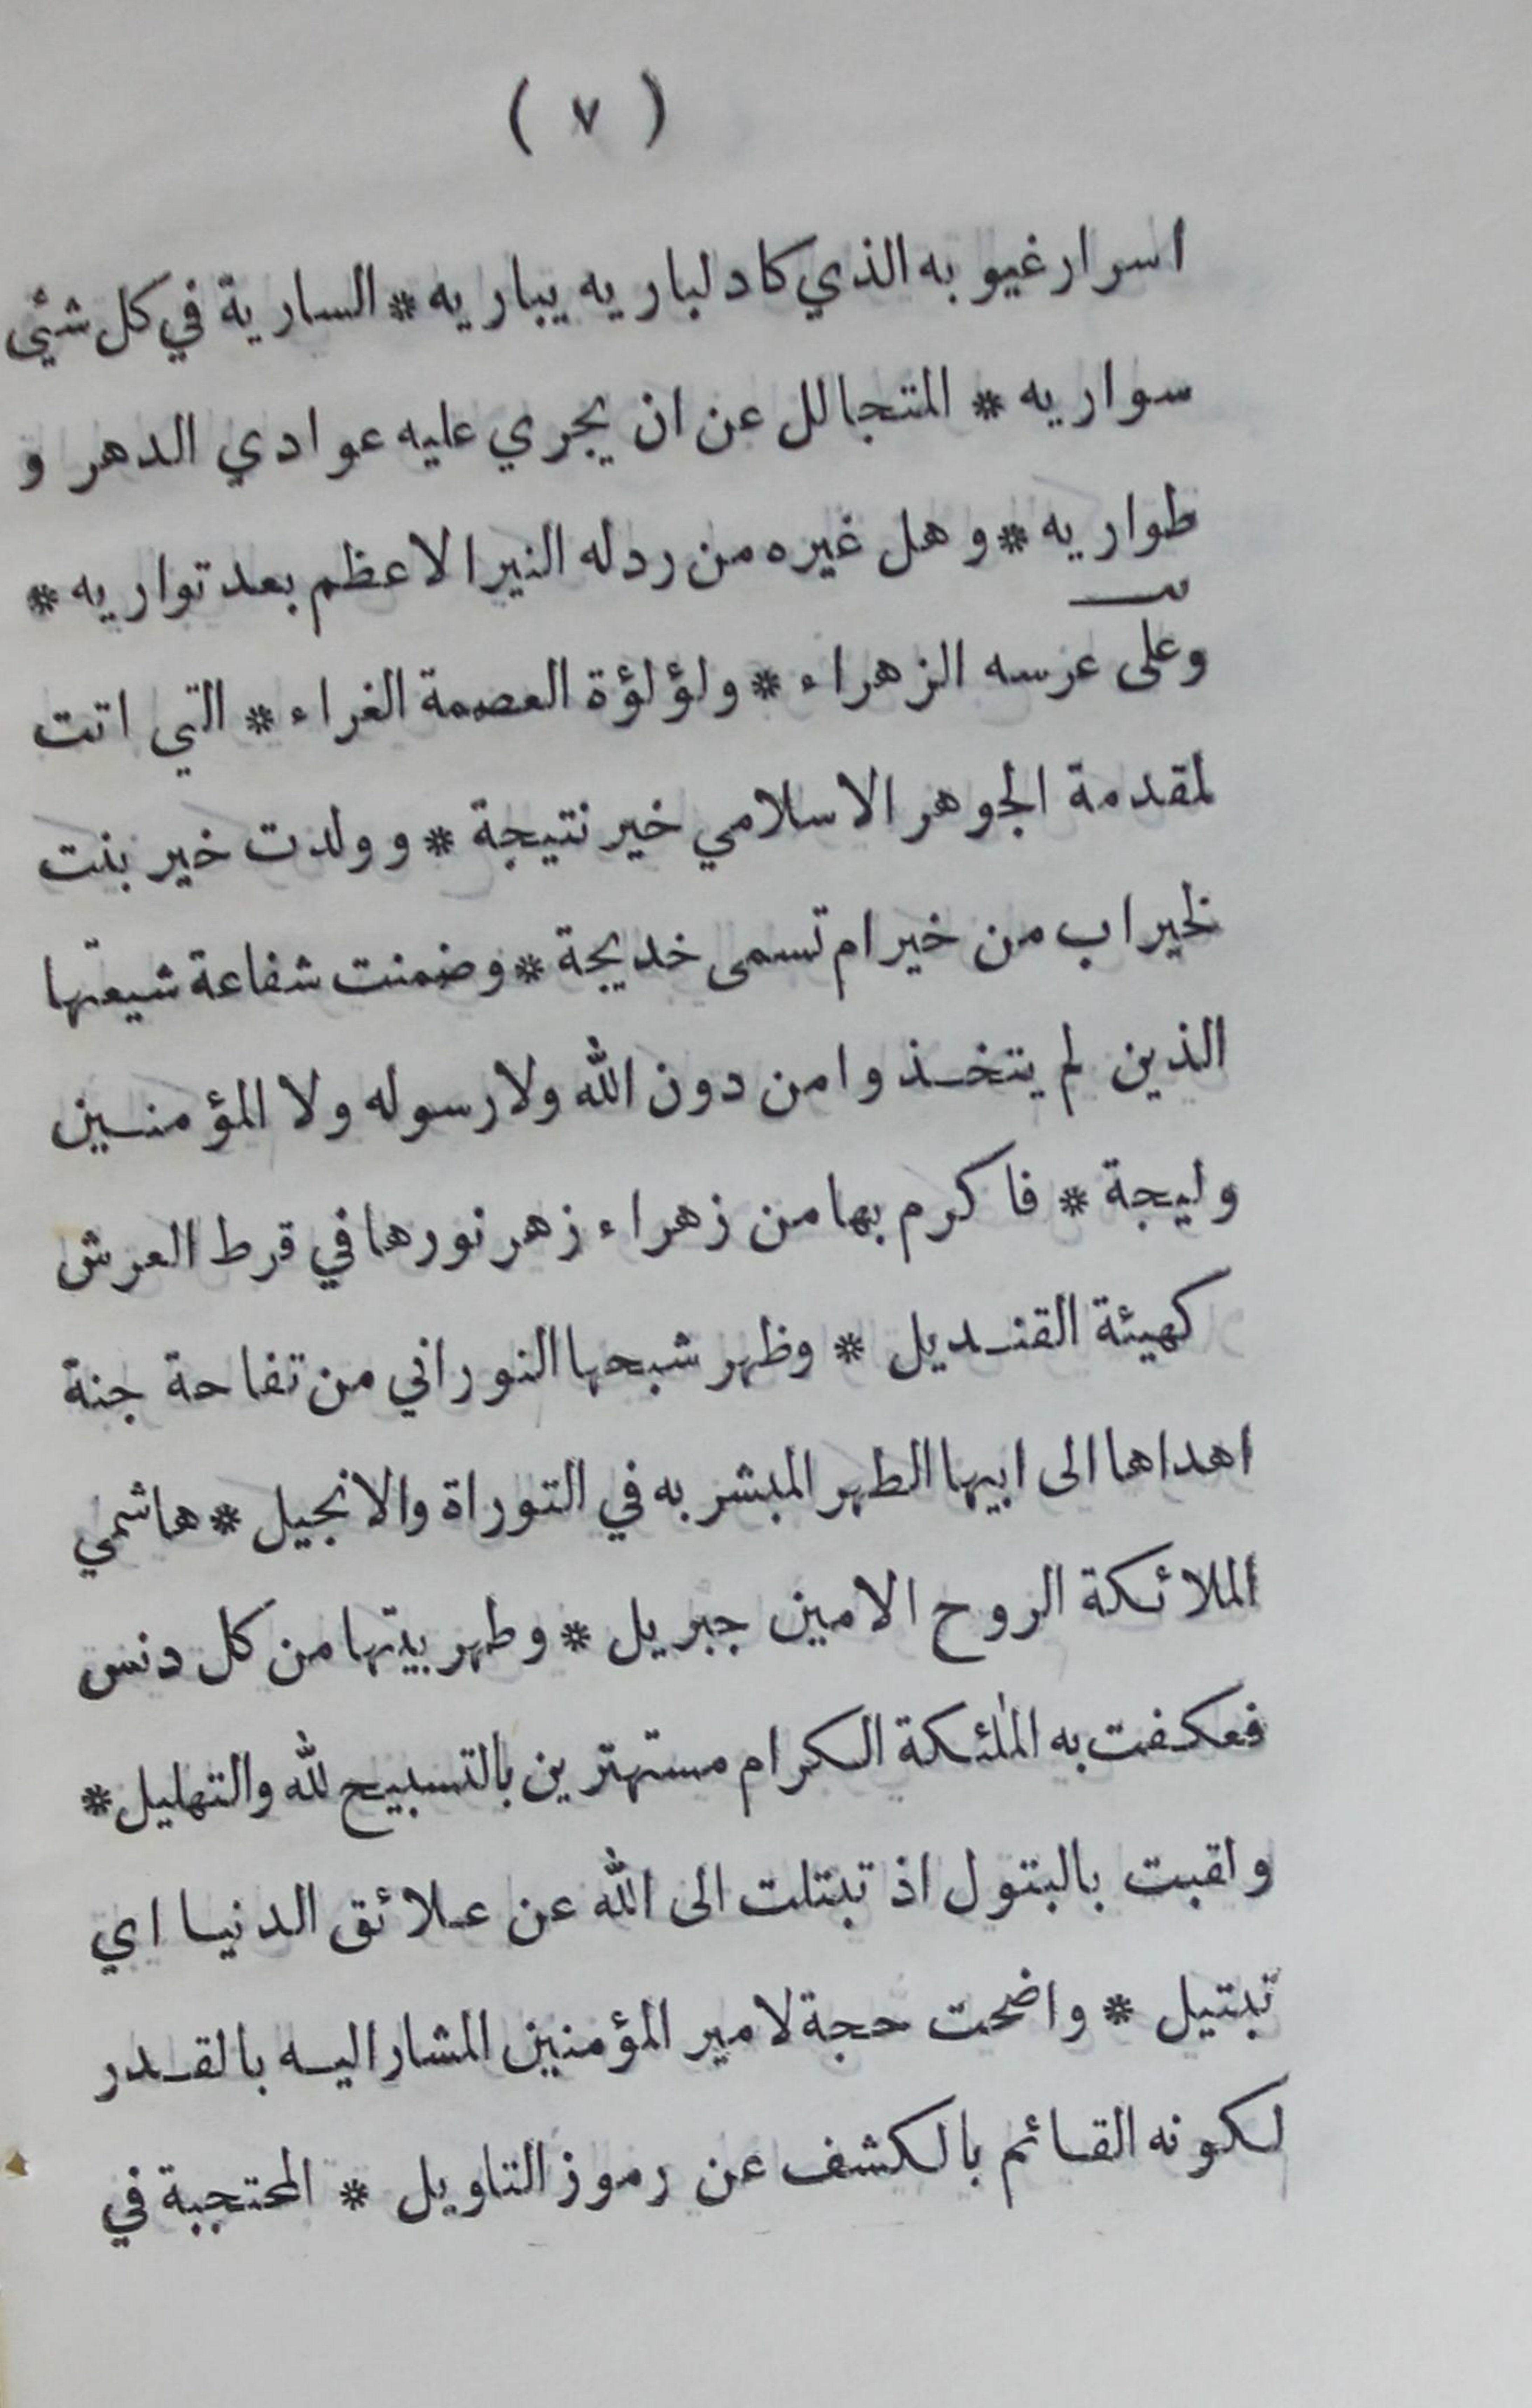 ( ٧ )
اسرار غيوبه الذي كاد لباريه يباريه * السارية في كل شئي
سواريه * المتجالل عن ان يجري عليه عوادي الدهر و
طواريه * و هل غيره من رد له النير الاعظم بعد تواريه *
وعلى عرسه الزهراء * ولؤلؤة العصمة الغراء * التي اتت
لمقدمة الجوهر الاسلامي خير نتيجة * و ولدت خير بنت
لخير اب من خير ام تسمى خديجة * وضمنت شفاعة شيعتها
الذين لم يتخذوا من دون الله ولا رسوله ولا المؤمنين
وليجة * فاكرم بها من زهراء زهر نورها في قرط العرش
كهيئة القنديل * وظهر شبحها النوراني من تفاحة جنة
اهداها الى ابيها الطهر المبشر به في التوراة والانجيل * هاشمي
الملائكة الروح الامين جبريل * وطهر بيتها من كل دنس
فعكفت به الملٰئكة الكرام مستهترين بالتسبيح لله والتهليل *
ولقبت بالبتول اذ تبتلت الى الله عن علائق الدنيا اي
تبتيل * واضحت حجة لامير المؤمنين المشار اليه بالقدر
لكونه القائم بالكشف عن رموز التاويل * المحتجبة في